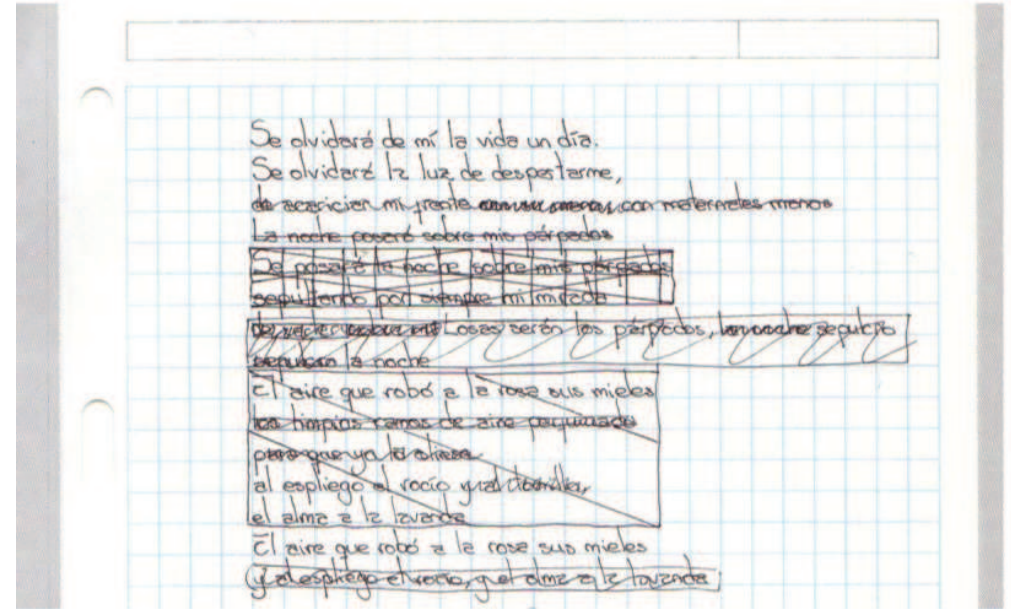 Se olvidará de mí la vida un día.
Se olvidará la luz de despertarme,
de acariciar mi frente con maternales manos
La noche posará sobre mis párpados
Se posará la noche sobre mis párpados
sepultando por siempre mi mirada
Losas serán los párpados, la noche sepulcro
sepulcro la noche
El aire que robó a la rosa sus mieles
los limpios ramos de aire
para que ya la oliese
al espliego el rocío y al tomillo,
el alma a la lavanda
El aire que robó a la rosa sus mieles
y al espliego el rocío, y el alma a la lavanda